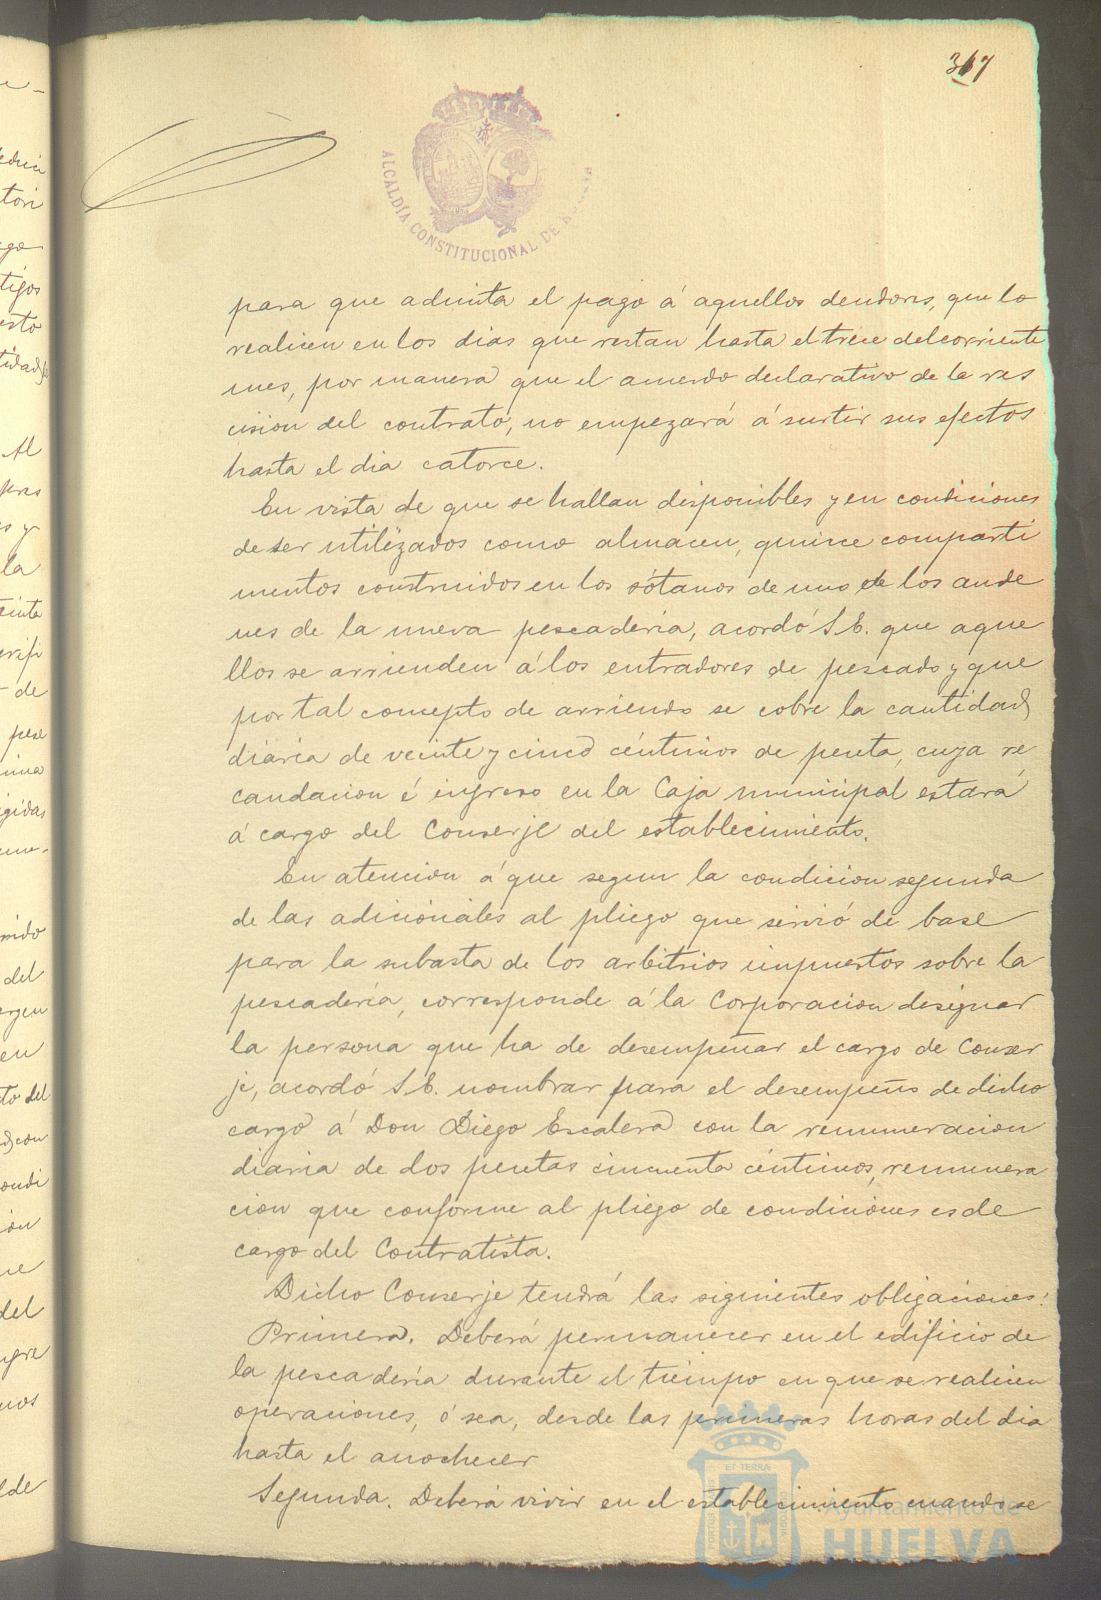 367
ALCALDÍA CONSTITUCIONAL DE HUELVA
para que admita el pago á aquellos deudores, que lo
realicen en los dias que restan hasta el trece del corriente
mes, por manera que el acuerdo declarativo de la res
cision del contrato, no empezará á surtir sus efectos
hasta el dia catorce.
En vista de que se hallan disponibles y en condiciones
de ser utilizados como almacen, quince comparti
mentos construidos en los sótanos de uno de los ande
nes de la nueva pescaderia, acordó S.E. que aque
llos se arrienden á los entradores de pescado y que
por tal concepto de arriendo se cobre la cantidad
diaria de veinte y cinco céntimos de peseta, cuya re
caudacion é ingreso en la Caja municipal estará
á cargo del Conserje del establecimiento.
En atencion á que segun la condicion segunda
de las adicionales al pliego que sirvió de base
para la subasta de los arbitrios impuestos sobre la
pescadería, corresponde á la Corporacion designar
la persona que ha de desempeñar el cargo de Conser
je, acordó S.E. nombrar para el desempeño de dicho
cargo á Don Diego Escalera con la remuneracion
diaria de dos pesetas cincuenta céntimos, remunera
cion que conforme al pliego de condiciones es de
cargo del Contratista.
Dicho Conserje tendrá las siguientes obligaciones:
Primera. Deberá permanecer en el edificio de
la pescadería durante el tiempo en que se realicen
operaciones, ó sea, desde las primeras horas del dia
hasta el anochecer
Segunda. Deberá vivir en el establecimiento cuando se
Ayuntamiento de
HUELVA